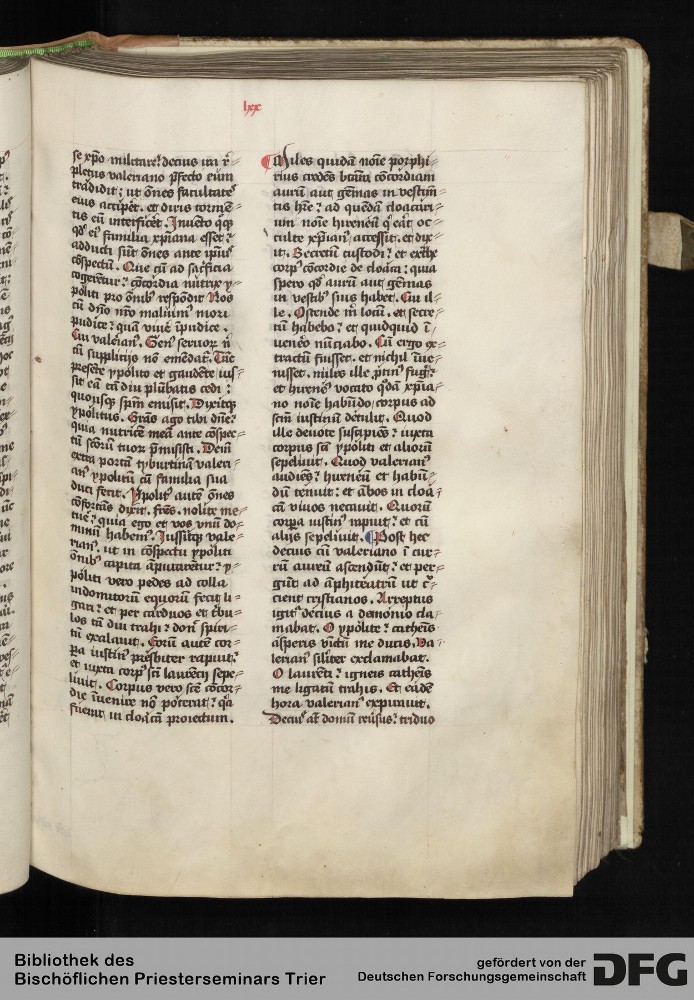 lxx
se xp̄o militare? decius ira r̄=
pletus valeriano p̄fecto eum
tradidit; ut ōnes facultates
eius acciꝑet. et diris tormē=
tis eū interficēt. Inuēto q̄ꝫ
qd̓ eiꝰ familia xp̄iana esset?
adducti sūt ōnes ante ip̄iuˢ
ꝯspectū. Que cū ad sac̓ficia
cogerētur? ꝯcordia nutrix y=
politi pro ōnibꝰ respōdit Nos
cū dn̄o nr̄o malimꝰ mori
pudice? quā viuē īpudice.
Cui valerianꝰ. Genꝰ seruoꝝ n̄
cū supplicijs nō emēdat̓. Tūc
presēte ypolito et gaudēte ius=
sit eā tā diu plūbatis cedi:
quousqꝫ sp̄m emisit. Dixitqꝫ
ypolitus. Grās ago tibi dn̄e?
quia nutricē meā ante ꝯspec=
tū sc̄oꝝ tuoꝝ p̄misisti. Deīn
extra portā tyburtinā valeri=
anꝰ ypolitū cū familia sua
duci fecit. Ypolitꝰ autē ōnes
ꝯfortās dixit. frēs. nolite me=
tuē? quia ego et vos vnū do=
minū habemꝰ. Iussitqꝫ vale=
rianꝰ. ut in ꝯspectu ypoliti
ōnibꝰ capita āputarētur? y=
politi vero pedes ad colla
indomitoꝝ equoꝝ fecit li=
gari? et per carduos et t̓bu=
los tā diu trahi? donꝫ spiri=
tū exalauit. Eoꝝ autē cor=
ꝑa iustinꝰ presbiter rapuit?
et iuxta corpꝰ sc̄i laurēcij sepe=
liuit. Corpus vero sc̄e ꝯcor=
die īuenire nō poterat? q̄a
fuerat in cloacā proiectum.
Miles quidā noīe porphi=
rius credēs btām ꝯcordiam
aurū aut gēmas in vestim̄=
tis hr̄e? ad quēdā cloacari=
um noīe hireneū q̄ erat oc=
culte xp̄ianꝰ accessit. et dix=
it. Secretū custodi? et ext̓he
corpꝰ ꝯcordie de cloaca; quia
spero qd̓ aurū aut gēmas
in vestibꝰ suis habet. Cui il=
le. Ostende m̄ locū. et secre=
tū habebo? et quidquid ī=
uenero nūciabo. Cū ergo ex=
tractū fuisset. et nichil īue=
nisset. miles ille p̄tinꝰ fugit?
et hireneꝰ vocato q̄dā xp̄ia=
no noīe habūdo? corpus ad
sc̄m iustinū detulit. Quod
ille deuote suscipiēs? iuxta
corpus sc̄i ypoliti et alioꝝ
sepeliuit. Quod valerianꝰ
audiēs? hireneū et habū=
dū tenuit: et ābos in cloa=
cā viuos necauit. Quoꝝ
corꝑa iustinꝰ rapuit? et cū
alijs sepeliuit. Post hec
decius cū valeriano ī cur=
rū aureū ascendūt? et per=
gūt ad āphiteatrū ut c̄=
cient cristianos. Arreptus
igit̓ decius a demonio cla=
mabat. O ypolite? cathenis
asperis vinctū me ducis. Va=
lerianꝰ silit̓er exclamabat.
O laurēti? igneis cathenis
me ligatū trahis. Et eādē
hora valerianꝰ expirauit.
Deciꝰ at̄ domū reūsus? triduo
Bibliothek des
Bischöflichen Priesterseminars Trier
gefördert von der
Deutschen Forschungsgemeinschaft
DFG